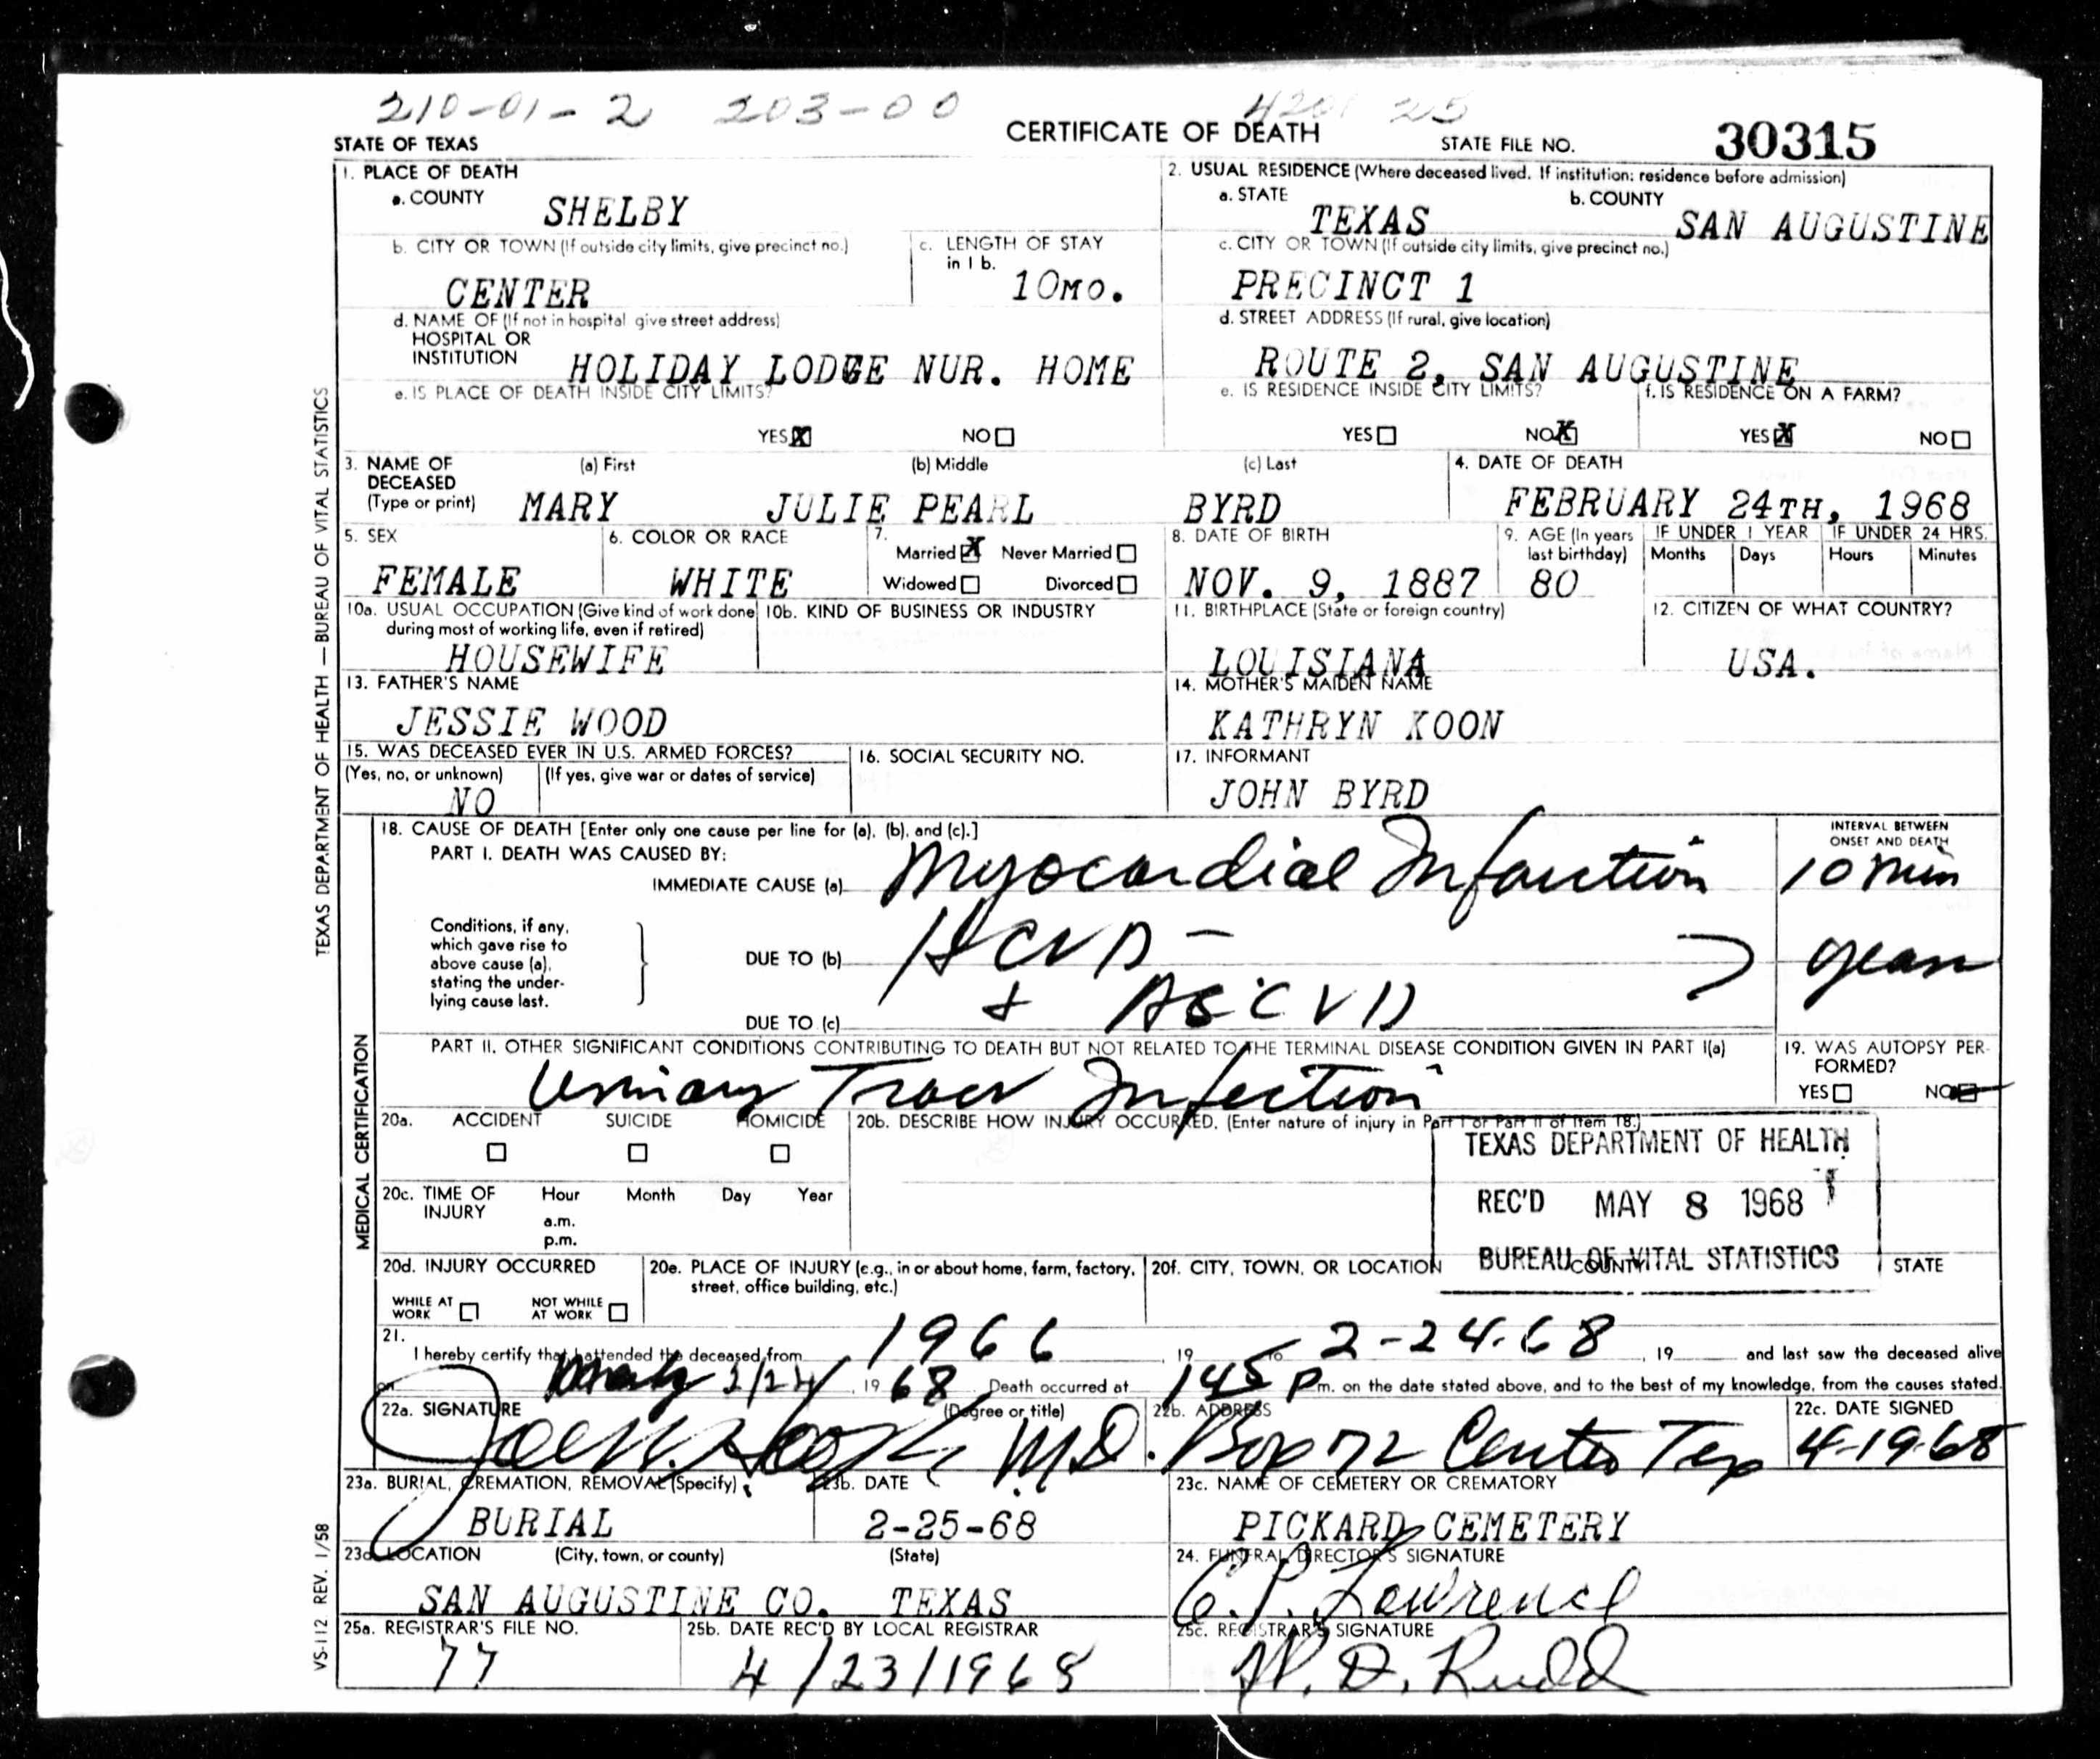 210-01-2 203-00 4201 25
STATE OF TEXAS CERTIFICATE OF DEATH STATE FILE NO. 30315
1. PLACE OF DEATH
a. COUNTY SHELBY
2. USUAL RESIDENCE (Where deceased lived. If institution: residence before admission)
a. STATE TEXAS b. COUNTY SAN AUGUSTINE
b. CITY OR TOWN (If outside city limits, give precinct no.) CENTER
c. LENGTH OF STAY in 1 b. 10MO.
c. CITY OR TOWN (If outside city limits, give precinct no.)
PRECINCT 1
d. NAME OF (If not in hospital give street address)
HOSPITAL OR
INSTITUTION HOLIDAY LODGE NUR. HOME
d. STREET ADDRESS (If rural, give location)
ROUTE 2, SAN AUGUSTINE
e. IS PLACE OF DEATH INSIDE CITY LIMITS?
YES X NO
e. IS RESIDENCE INSIDE CITY LIMITS?
YES NO X
f. IS RESIDENCE ON A FARM?
YES X NO
3. NAME OF DECEASED (Type or print)
(a) First (b) Middle (c) Last
MARY JULIE PEARL BYRD
4. DATE OF DEATH
FEBRUARY 24TH, 1968
5. SEX
FEMALE
6. COLOR OR RACE
WHITE
7. Married X Never Married
Widowed Divorced
8. DATE OF BIRTH
NOV. 9, 1887
9. AGE (In years last birthday)
80
IF UNDER 1 YEAR IF UNDER 24 HRS.
Months Days Hours Minutes
10a. USUAL OCCUPATION (Give kind of work done during most of working life, even if retired)
HOUSEWIFE
10b. KIND OF BUSINESS OR INDUSTRY
11. BIRTHPLACE (State or foreign country)
LOUISIANA
12. CITIZEN OF WHAT COUNTRY?
USA.
13. FATHER'S NAME
JESSIE WOOD
14. MOTHER'S MAIDEN NAME
KATHRYN KOON
15. WAS DECEASED EVER IN U.S. ARMED FORCES?
(Yes, no, or unknown) (If yes, give war or dates of service)
NO
16. SOCIAL SECURITY NO.
17. INFORMANT
JOHN BYRD
18. CAUSE OF DEATH [Enter only one cause per line for (a), (b), and (c).]
PART I. DEATH WAS CAUSED BY:
IMMEDIATE CAUSE (a) Myocardial Infarction
INTERVAL BETWEEN ONSET AND DEATH
10 min
Conditions, if any,
which gave rise to
above cause (a),
stating the under-
lying cause last.
DUE TO (b) HCVD -
years
DUE TO (c) + ASCVD
PART II. OTHER SIGNIFICANT CONDITIONS CONTRIBUTING TO DEATH BUT NOT RELATED TO THE TERMINAL DISEASE CONDITION GIVEN IN PART I(a)
Urinary Tract Infection
19. WAS AUTOPSY PER-
FORMED?
YES NO
20a. ACCIDENT SUICIDE HOMICIDE
20b. DESCRIBE HOW INJURY OCCURRED. (Enter nature of injury in Part I or Part II of Item 18.)
TEXAS DEPARTMENT OF HEALTH
REC'D MAY 8 1968
BUREAU OF VITAL STATISTICS
20c. TIME OF INJURY
Hour Month Day Year
a.m.
p.m.
20d. INJURY OCCURRED
WHILE AT WORK NOT WHILE AT WORK
20e. PLACE OF INJURY (e.g., in or about home, farm, factory, street, office building, etc.)
20f. CITY, TOWN, OR LOCATION COUNTY STATE
21.
I hereby certify that I attended the deceased from 1966, 19 to 2-24-68, 19 and last saw the deceased alive
on 2/24, 19 68. Death occurred at 145 P m. on the date stated above, and to the best of my knowledge, from the causes stated.
22a. SIGNATURE (Degree or title)
M.D.
22b. ADDRESS
Box 72 Center Tex
22c. DATE SIGNED
4-19-68
23a. BURIAL, CREMATION, REMOVAL (Specify)
BURIAL
23b. DATE
2-25-68
23c. NAME OF CEMETERY OR CREMATORY
PICKARD CEMETERY
23d. LOCATION (City, town, or county) (State)
SAN AUGUSTINE CO. TEXAS
24. FUNERAL DIRECTOR'S SIGNATURE
C.P. Lawrence
25a. REGISTRAR'S FILE NO.
77
25b. DATE REC'D BY LOCAL REGISTRAR
4/23/1968
25c. REGISTRAR'S SIGNATURE
D. Rudd
TEXAS DEPARTMENT OF HEALTH — BUREAU OF VITAL STATISTICS
MEDICAL CERTIFICATION
VS-112 REV. 1/58